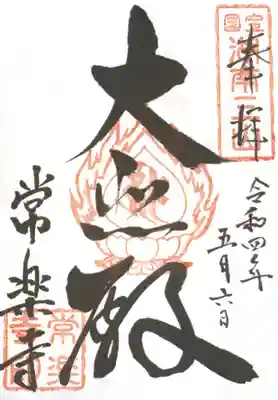 奉拝
令和四年
五月六日
大悲殿
常楽寺
常楽